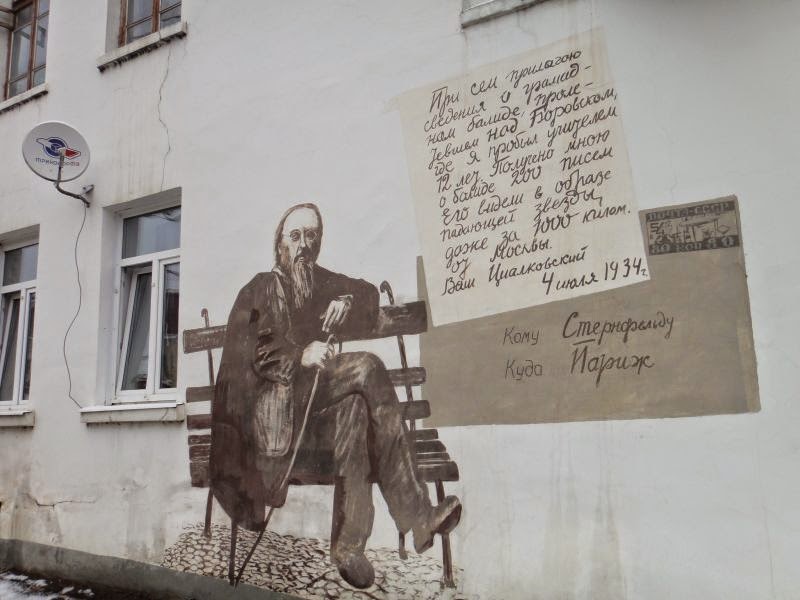 При сем прилагою
сведения о грамад-
нам балиде, проле-
тевшем над Боровском,
где я пробыл учителем
12 лет. Получено мною
о балиде 200 писем
Его видели в образе
падающей звезды,
даже за 1000 килом.
от Москвы.
Ваш Циалковский
4 июля 1934г.
ПОЧТА СССР
Кому Стернфельду
Куда Париж
ТРИКОЛОР ТВ